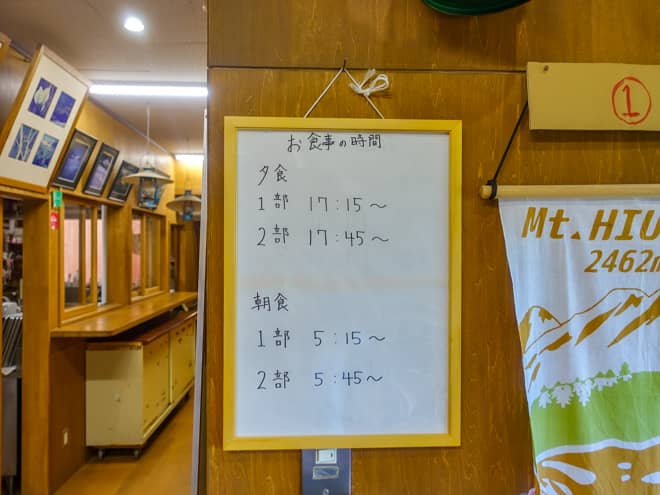 お食事の時間
夕食
1部 17:15～
2部 17:45～
朝食
1部 5:15～
2部 5:45～
①
Mt. HIU
2462m